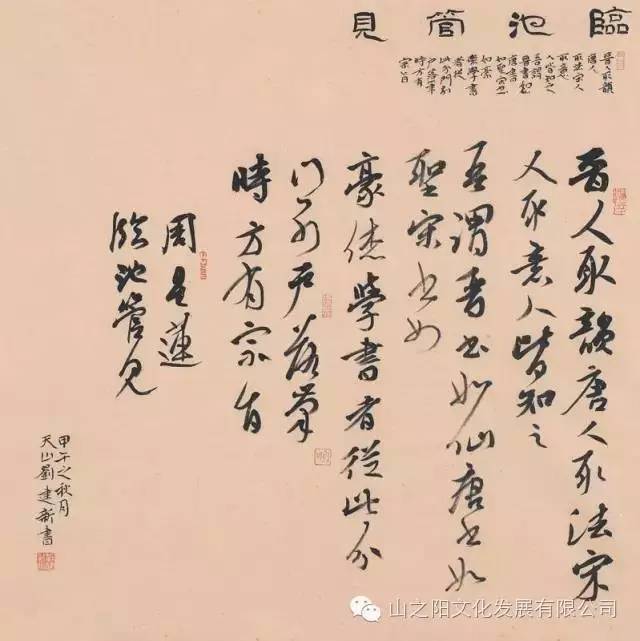 臨池管見
晉人取韻
唐人
取法宋人
取意
人皆知之
吾謂
唐書
如聖宋書
如豪
傑學書
者從
此分門別
戶落筆
時方有
宗旨
晉人取韻唐人取法宋
人取意人皆知之
吾謂晉書如仙唐書如
聖宋書如
豪傑學書者從此分
門別戶落筆
時方有宗旨
周星蓮
臨池管見
甲午之秋月
天山劉建新書
山之阳文化发展有限公司